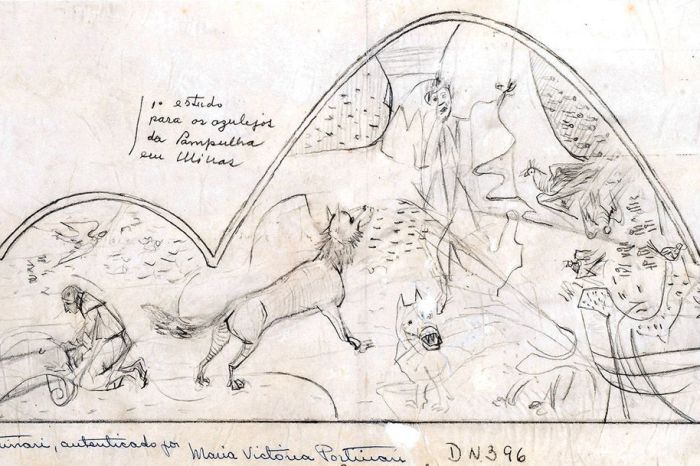 1º estudo
para os azulejos
da Pampulha
em Minas
autenticado por Maria Victoria Portinari
DN396